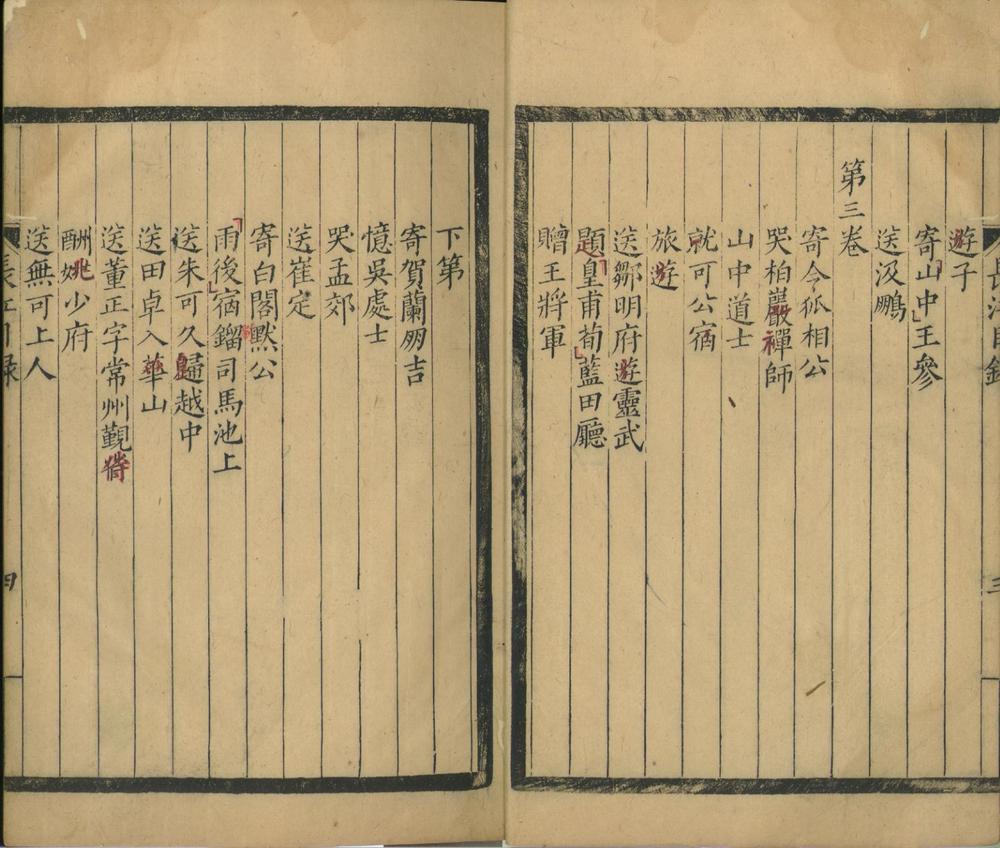 長江目錄
三
遊子
寄山中王參
送汲鵬
第三卷
寄令狐相公
哭柏巖禪師
山中道士
就可公宿
旅遊
送鄒明府遊靈武
題皇甫荀藍田廳
贈王將軍
下第
寄賀蘭朋吉
憶吳處士
哭孟郊
送崔定
寄白閣默公
雨後宿鎦司馬池上
送朱可久歸越中
送田卓入華山
送董正字常州覲省
酬姚少府
送無可上人
長江目録
四